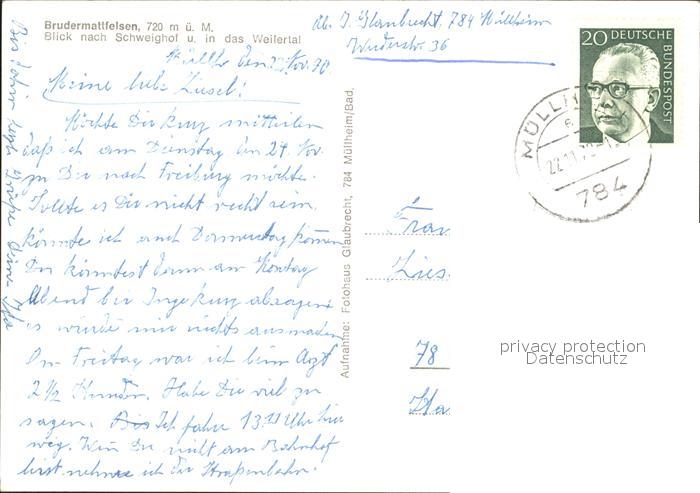 Brudermattfelsen, 720 m ü. M.
Blick nach Schweighof u. in das Weilertal
Abs. I. Glaubrecht, 784 Müllheim
Werderstr. 36
20 DEUTSCHE BUNDESPOST
MÜLLH
22.11.70
784
Müllh. den 22. Nov. 70
Meine liebe Liesel!
Möchte Dir kurz mitteilen
daß ich am Dienstag den 24. Nov.
zu Dir nach Freiburg möchte.
Sollte es Dir nicht recht sein,
könnte ich auch Donnerstag kommen
Du könntest dann am Montag
Abend bei Inge kurz absagen
es würde mir nichts ausmachen
Am Freitag war ich beim Arzt
2 1/2 Stunden. Habe Dir viel zu
sagen. Ich fahre 13 Uhr hier
weg. Wenn Du nicht am Bahnhof
bist nehme ich die Straßenbahn.
Bis dahin Grüße Deine
Aufnahme: Fotohaus Glaubrecht, 784 Müllheim/Bad.
Frau
Lies
78
privacy protection
Datenschutz